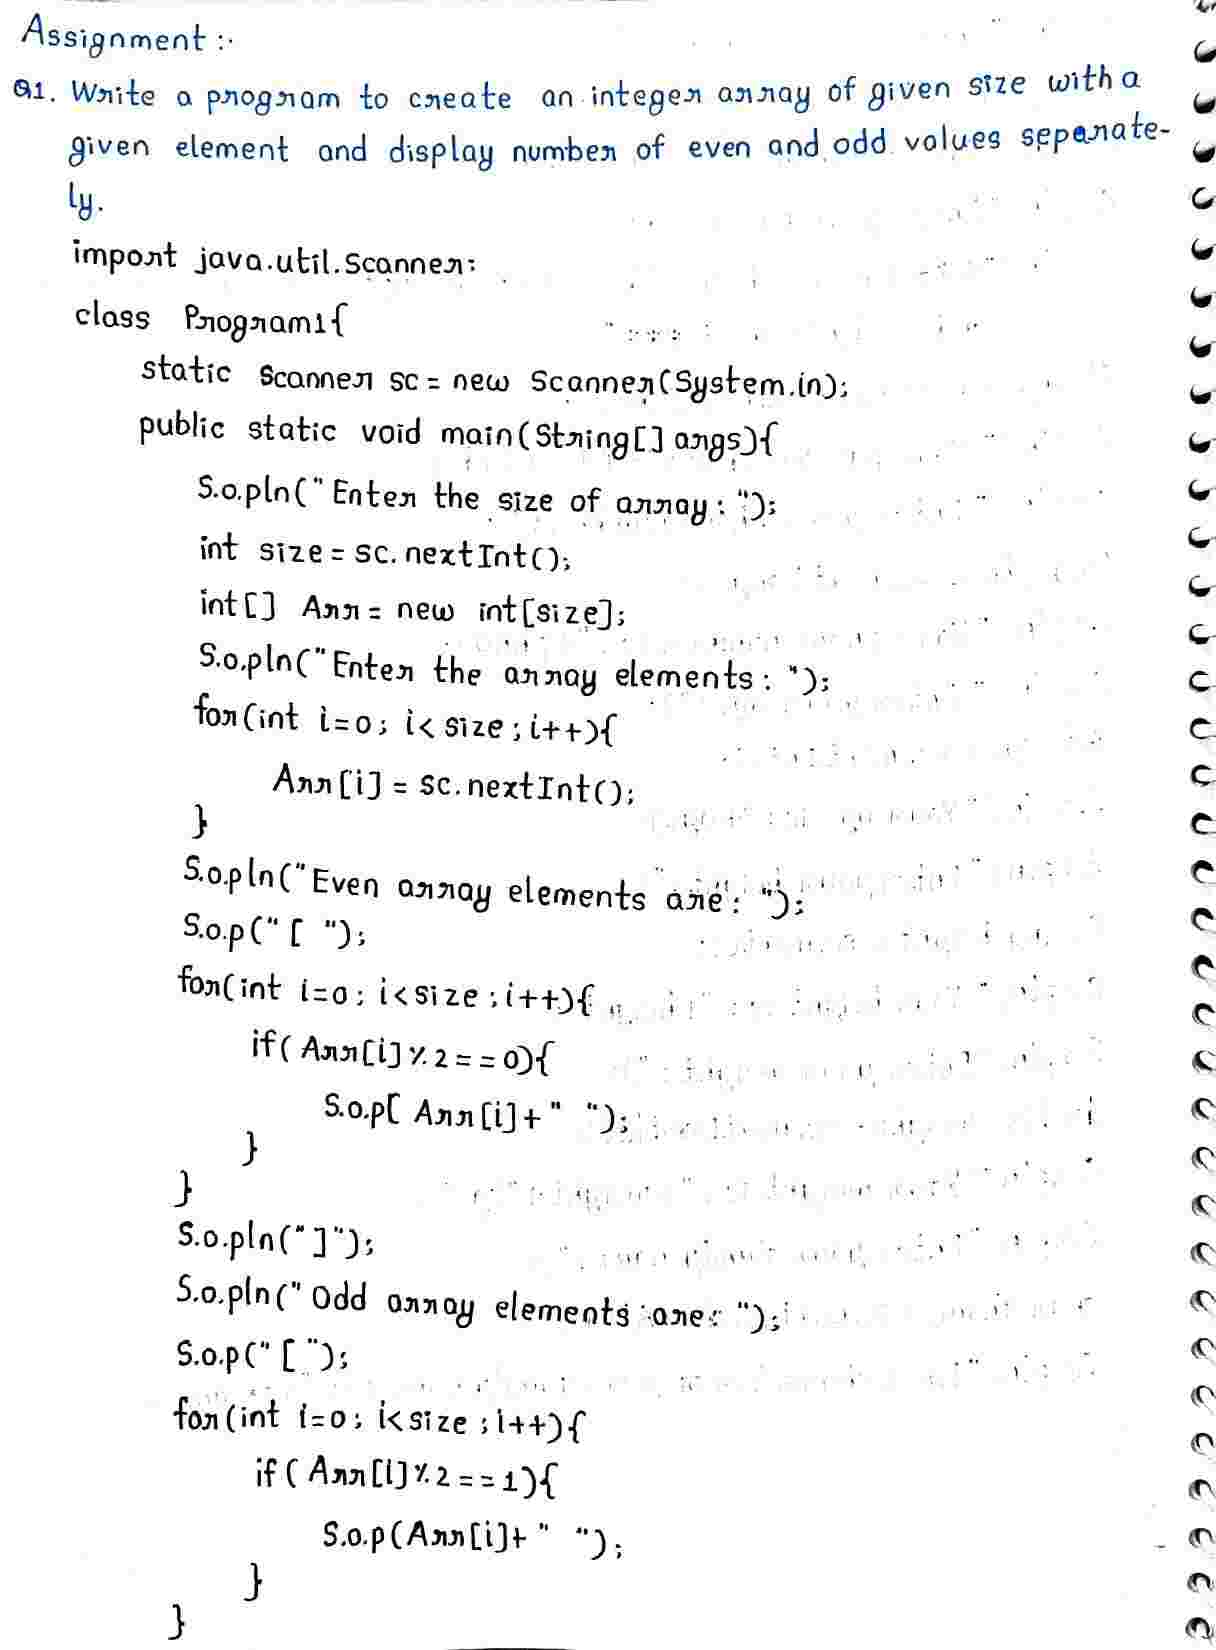 Assignment :-
Q1. Write a program to create an integer array of given size with a
given element and display number of even and odd values seperate-
ly.
import java.util.Scanner;
class Program1{
static Scanner sc = new Scanner(System.in);
public static void main(String[] args){
S.o.pln("Enter the size of array : ");
int size = sc.nextInt();
int[] Arr = new int[size];
S.o.pln("Enter the array elements : ");
for(int i=0; i<size; i++){
Arr[i] = sc.nextInt();
}
S.o.pln("Even array elements are : ");
S.o.p(" [ ");
for(int i=0; i<size; i++){
if( Arr[i] % 2 == 0){
S.o.p[ Arr[i] + " ");
}
}
S.o.pln("]");
S.o.pln(" Odd array elements are: ");
S.o.p(" [ ");
for(int i=0; i<size; i++){
if( Arr[i] % 2 == 1){
S.o.p(Arr[i]+ " ");
}
}